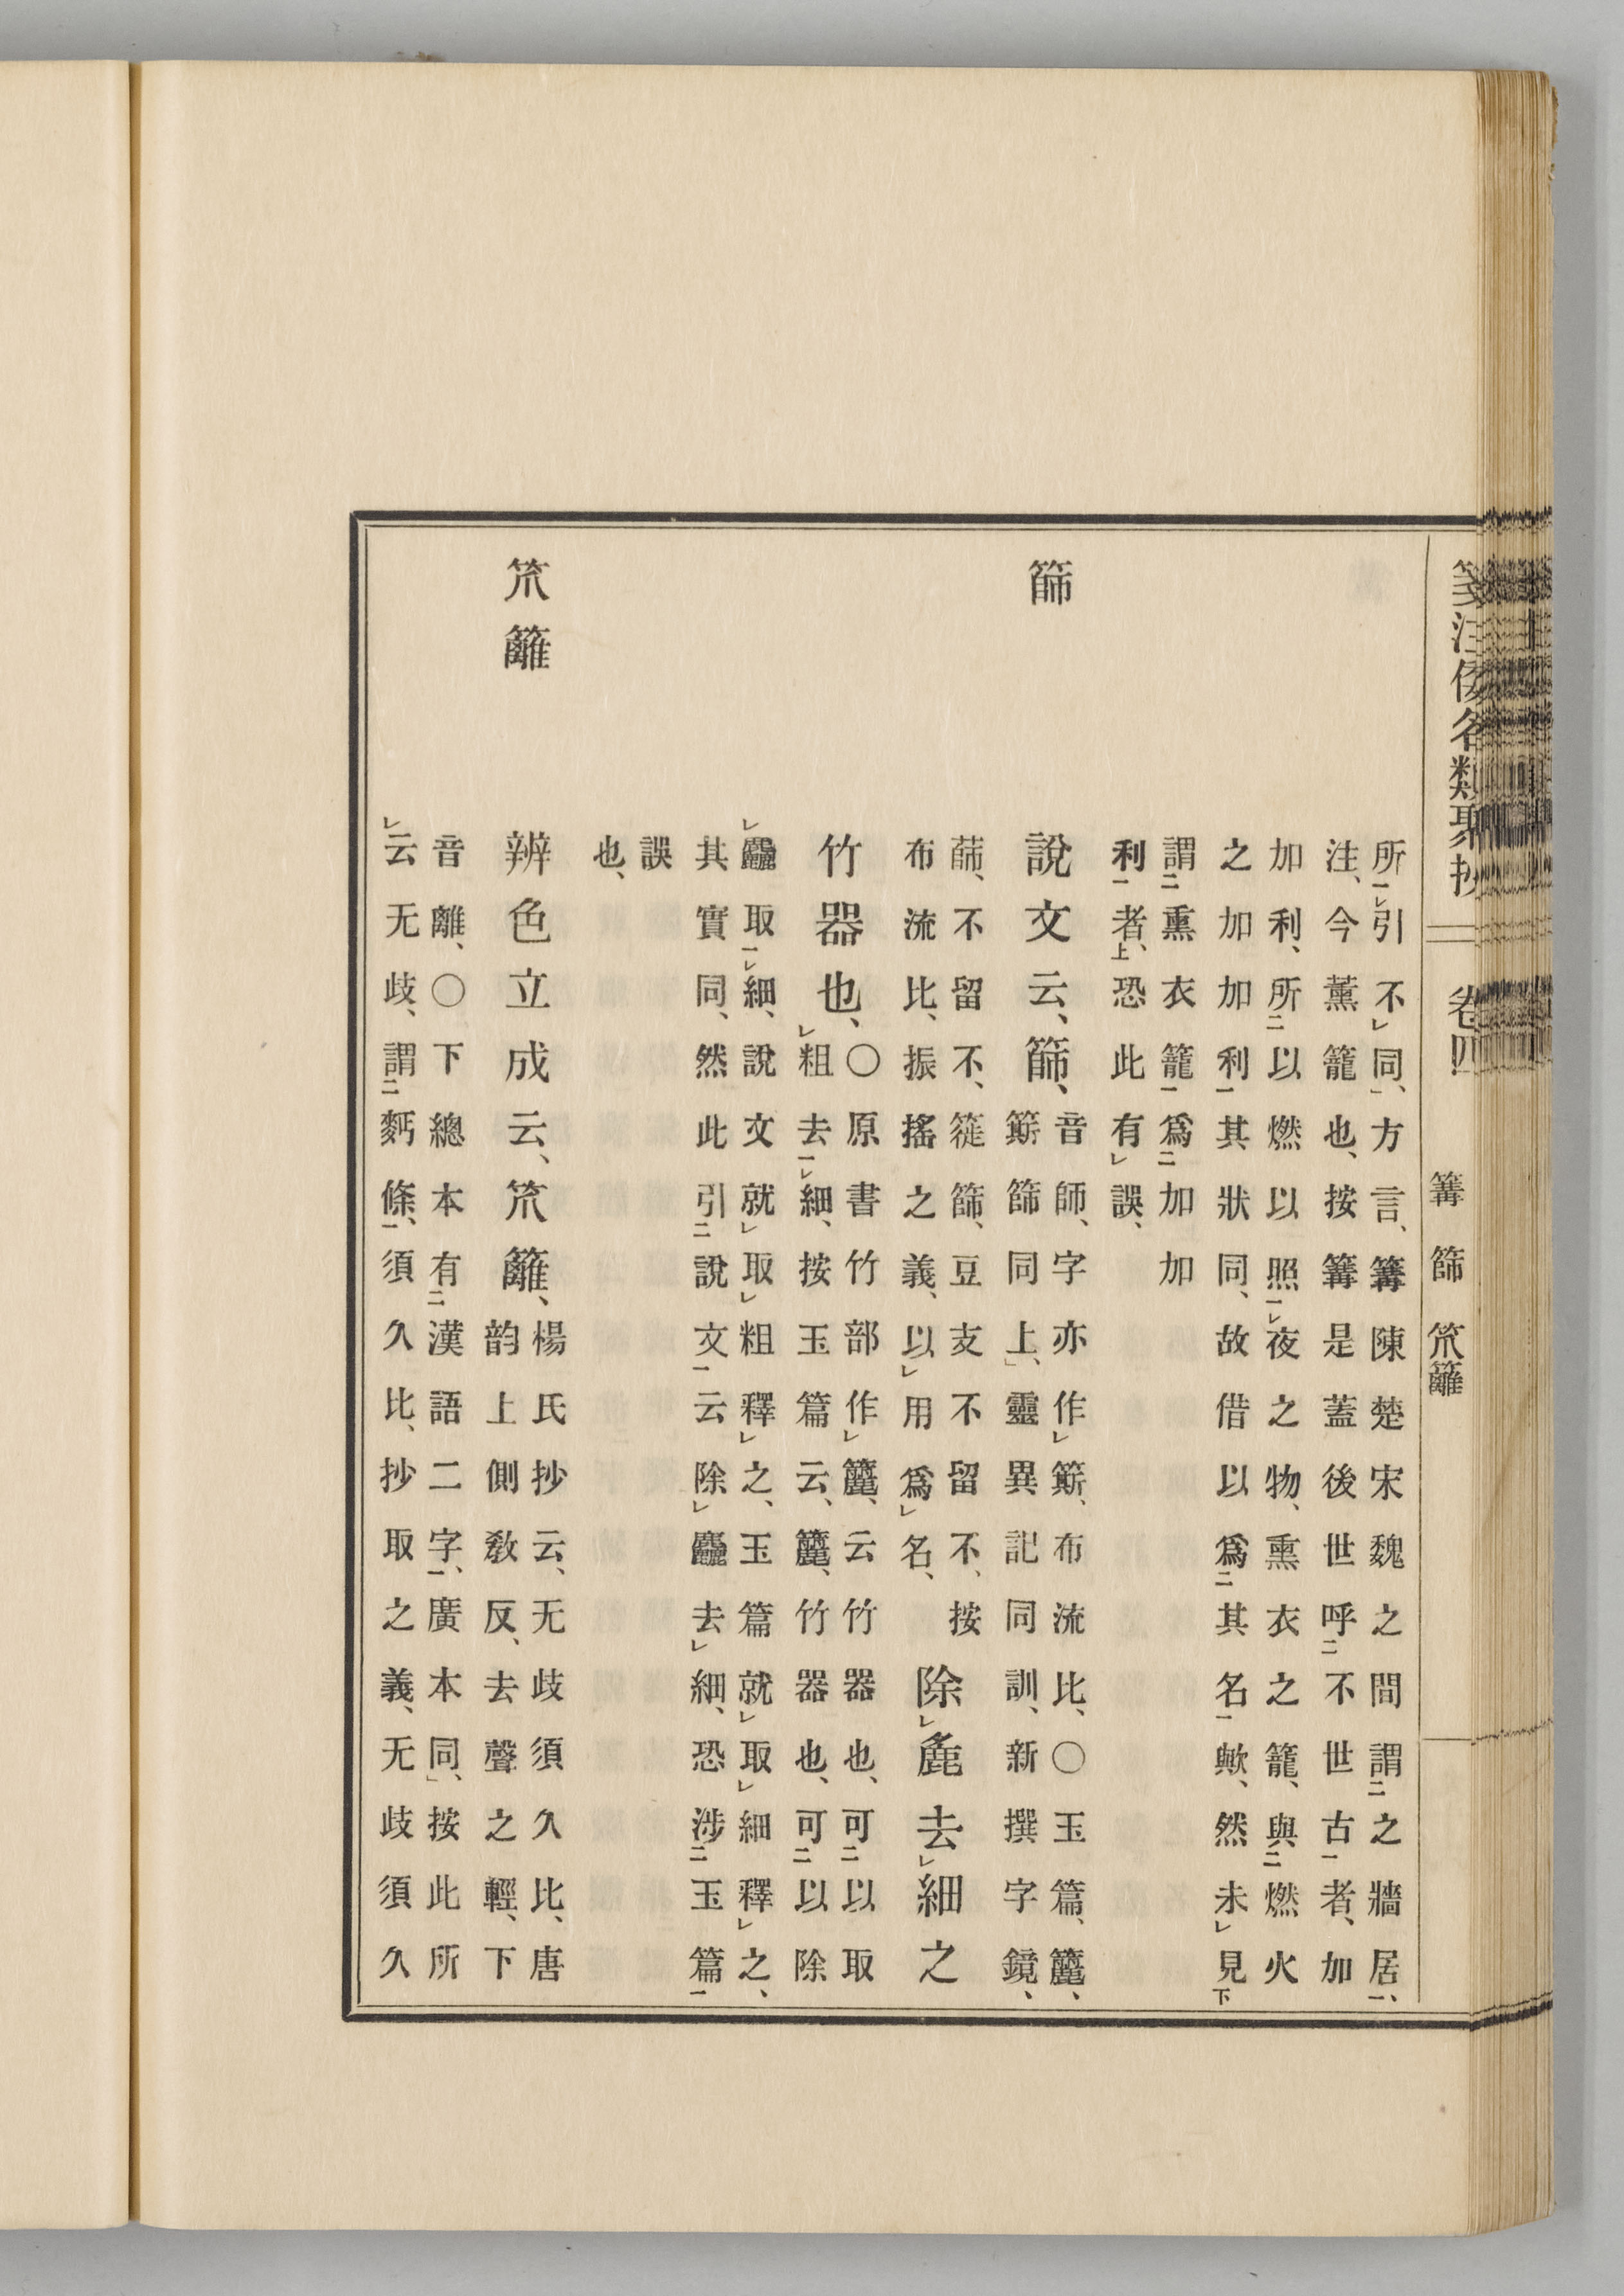 箋注倭名類聚抄 卷四 篝 篩 笊籬
所㆒㆑引不㆑同、」方言、篝陳楚宋魏之間謂㆓之牆居㆒、
注、今薫籠也、按篝是蓋後世呼㆓不世古㆒者、加
加利、所㆓以燃以照㆒㆑夜之物、熏衣之籠、與㆓燃火
之加加利㆒其狀同、故借以爲㆓其名㆒歟、然未㆑見㆘
謂㆓熏衣籠㆒爲㆓加加
利㆒者㆖、恐此有㆑誤、
篩
説文云、篩、
音師、字亦作㆑簛、布流比、〇玉篇、簏、
簛篩同上、」靈異記同訓、新撰字鏡、
䔑、不留不、簁篩、豆支不留不、按
布流比、振搖之義、以㆑用爲㆑名、
除㆑麁去㆑細之
竹器也、
〇原書竹部作㆑簏、云竹器也、可㆓以取
㆑粗去㆒㆑細、按玉篇云、簏、竹器也、可㆓以除
㆑麤取㆒㆑細、説文就㆑取㆑粗釋㆑之、玉篇就㆑取㆑細釋㆑之、
其實同、然此引㆓説文㆒云除㆑麤去㆑細、恐涉㆓玉篇㆒
誤
也、
笊籬
辨色立成云、笊籬、
楊氏抄云、无歧須久比、唐
韵上側敎反、去聲之輕、下
音離、〇下總本有㆓漢語二字㆒、廣本同、」按此所
㆑云无歧、謂㆓麪條㆒、須久比、抄取之義、无歧須久